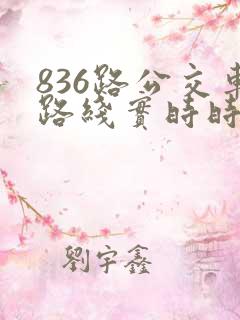 836路公交車
路綫實時時
劉宇鑫